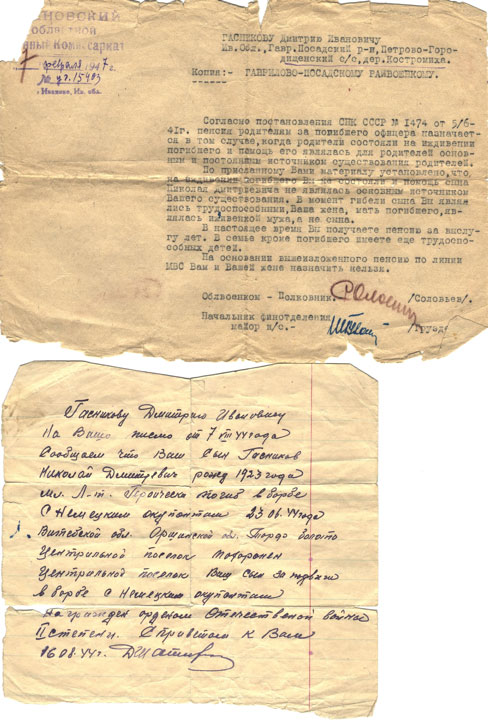 НОВСКИЙ
Областной
Комиссариат
7 февраля 1947 г.
№
г. Иваново, Ив. обл.
ГАСНЕКОВУ Дмитрию Ивановичу
Ив. Обл., Гавр. Посадский р-н, Петрово-Горо-
дищенский с/с, дер. Костромиха.
Копия:- ГАВРИЛОВО-ПОСАДСКОМУ РАЙВОЕНКОМУ.
Согласно постановления СНК СССР № 1474 от 5/6-
41г. пенсия родителям за погибшего офицера назначает-
ся в том случае, когда родители состояли на иждивении
погибшего и помощь его являлась для родителей основ-
ным и постоянным источником существования родителей.
По присланному Вами материалу установлено, что,
на иждивении погибшего Вы не состояли и помощь сына
Николая Дмитриевича не являлась основным источником
Вашего существования. В момент гибели сына Вы явля-
лись трудоспособными, Ваша жена, мать погибшего, яв-
лялась иждивенкой мужа, а не сына.
В настоящее время Вы получаете пенсию за выслу-
гу лет. В семье кроме погибшего имеете еще трудоспо-
собных детей.
На основании вышеизложенного пенсию по линии
МВС Вам и Вашей жене назначить нельзя.
Облвоенком - Полковник- /Соловьев/.
Начальник финотделения
майор и/с.-
Гасникову Дмитрию Ивановичу
На Ваше письмо от 7 VIII 44 года
Сообщаем что Ваш Сын Гасников
Николай Дмитревич рожд 1923 года
мл. Л-т. Героически погиб в борьбе
С Немецким окупантам 23.06.44 года
Витебской обл. Оршанской обл. Торфо болото
Центрильной поселок похоронен
Центрильной поселок Ваш сын за подвиги
в борьбе с Немецким окупантам
награжден орденом Отечественой войны
II степени. С приветом к Вам
16.08.44 г.